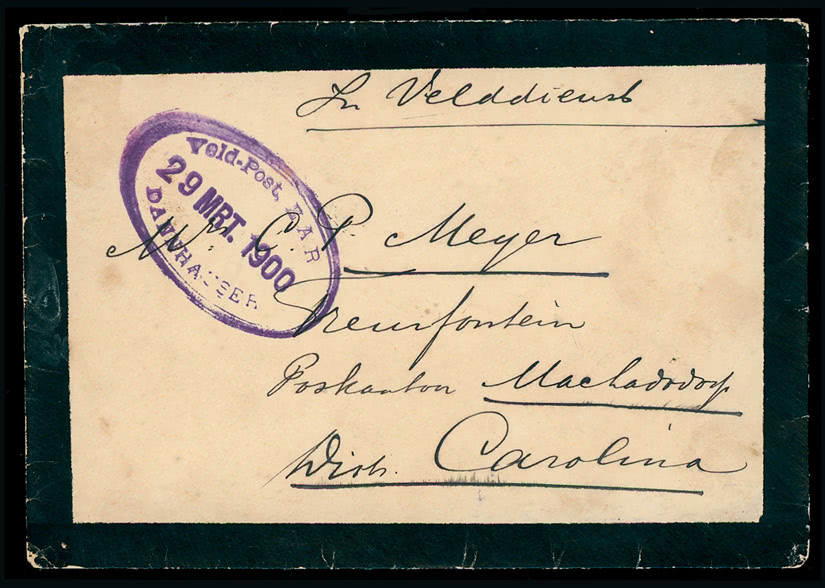 In Velddienst
Veld-Post, ZAR
29 MRT. 1900
DANNHAUSER
Mr. C. P. Meyer
Poskantoor Machadodorp
Dist. Carolina